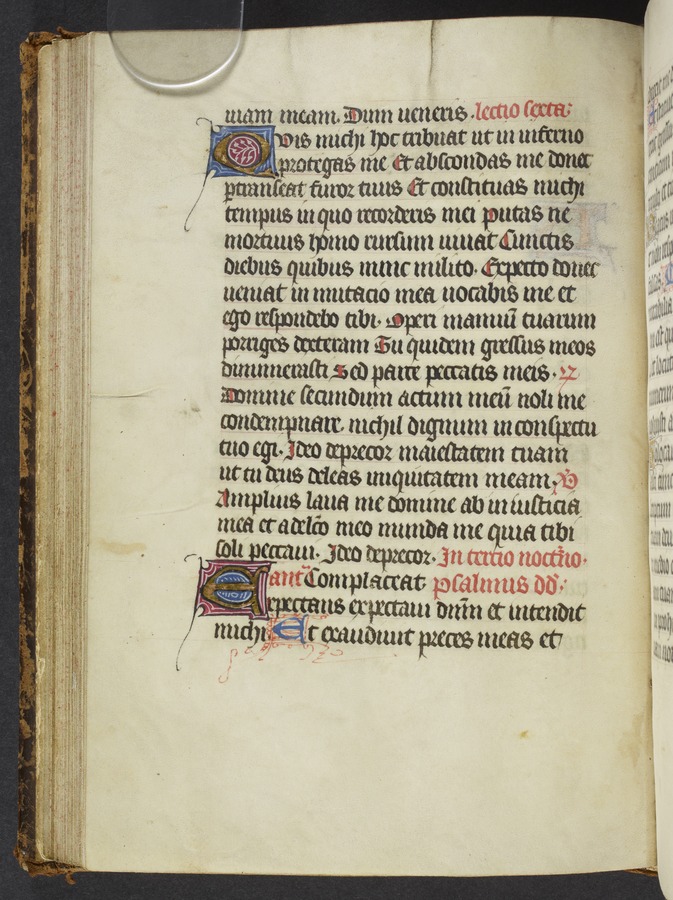 uiam meam. Dum ueneris. lectio sexta:
Quis michi hoc tribuat ut in inferno
protegas me Et abscondas me donec
ptranseat furor tuus Et constituas michi
tempus in quo recorderis mei putas ne
mortuus homo rursum uiuat Cunctis
diebus quibus nunc milito. Expecto donec
ueniat in mutacio mea uocabis me et
ego respondebo tibi. Operi manuū tuarum
porriges dexteram Tu quidem gressus meos
dinumerasti Sed parce peccatis meis.
Domine secundum actum meū noli me
condempnare. nichil dignum in conspectu
tuo egi. Ideo deprecor maiestatem tuam
ut tu deus deleas iniquitatem meam.
Amplius laua me domine ab iniusticia
mea et a delc̄o meo munda me quia tibi
soli peccaui. Ideo deprecor. In tercio noct̄no.
ant̄ Complaceat psalmus dd̄.
Expectans expectaui dn̄m et intendit
michi Et exaudiuit preces meas et